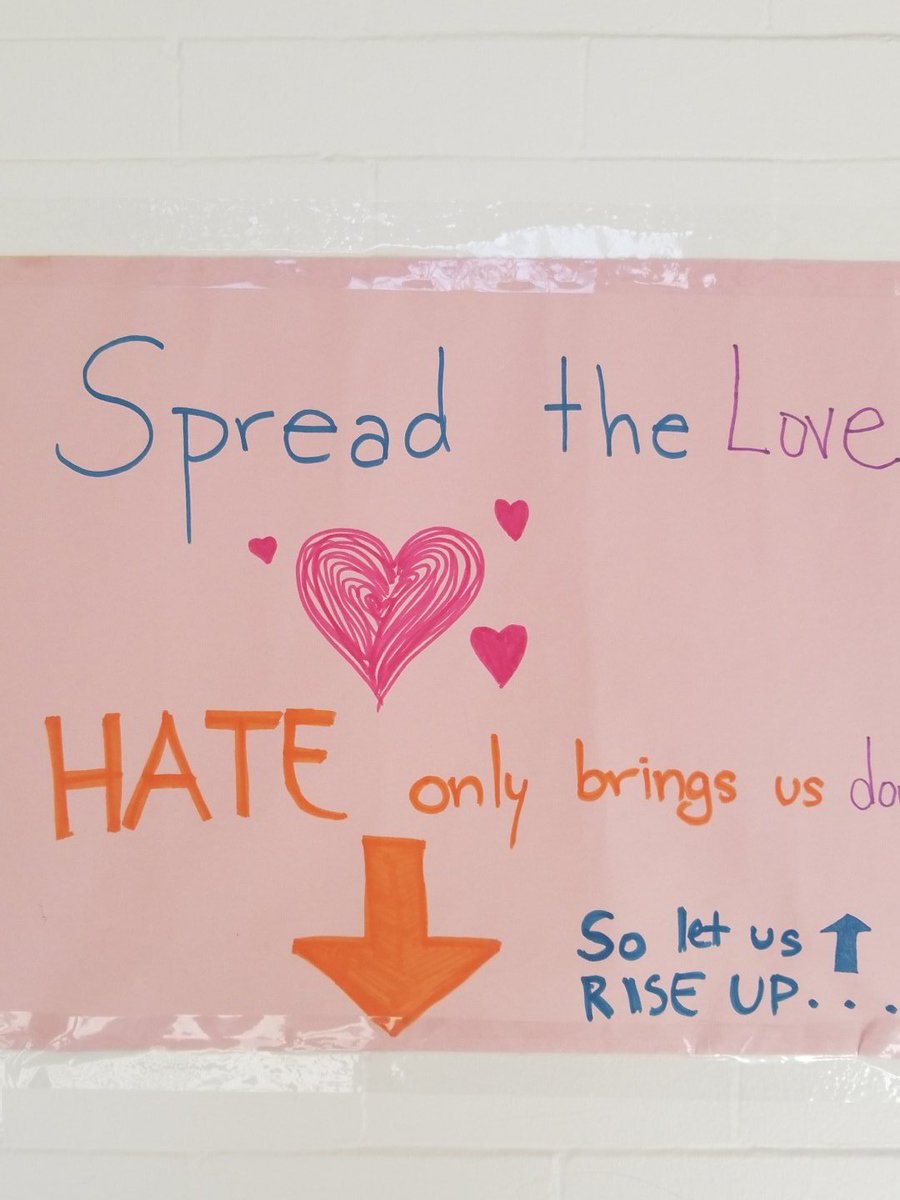 Spread the Love
HATE only brings us
So let us
RISE UP....